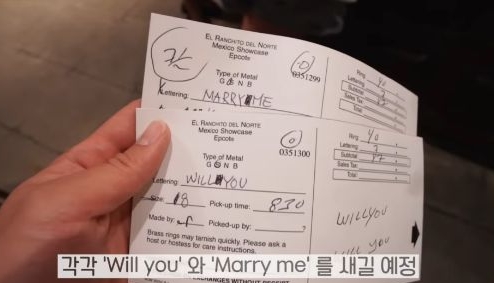 EL RANCHITO DEL NORTE
Mexico Showcase
Epcot®
0351299
Type of Metal
G S N B
Lettering: MARRY ME
Ring 40
Lettering
Subtotal
Sales Tax:
Total:
EL RANCHITO DEL NORTE
Mexico Showcase
Epcot®
0351300
Type of Metal
G S N B
Lettering: WILL YOU
Size: 18 Pick-up time: 830
Made by: Picked-up by:
Brass rings may tarnish quickly. Please ask a
host or hostess for care instructions.
EXCHANGES WITHOUT RECEIPT
Ring 40
Lettering
Subtotal
Sales Tax:
Total:
WILL YOU
WILL YOU
각각 'Will you' 와 'Marry me' 를 새길 예정